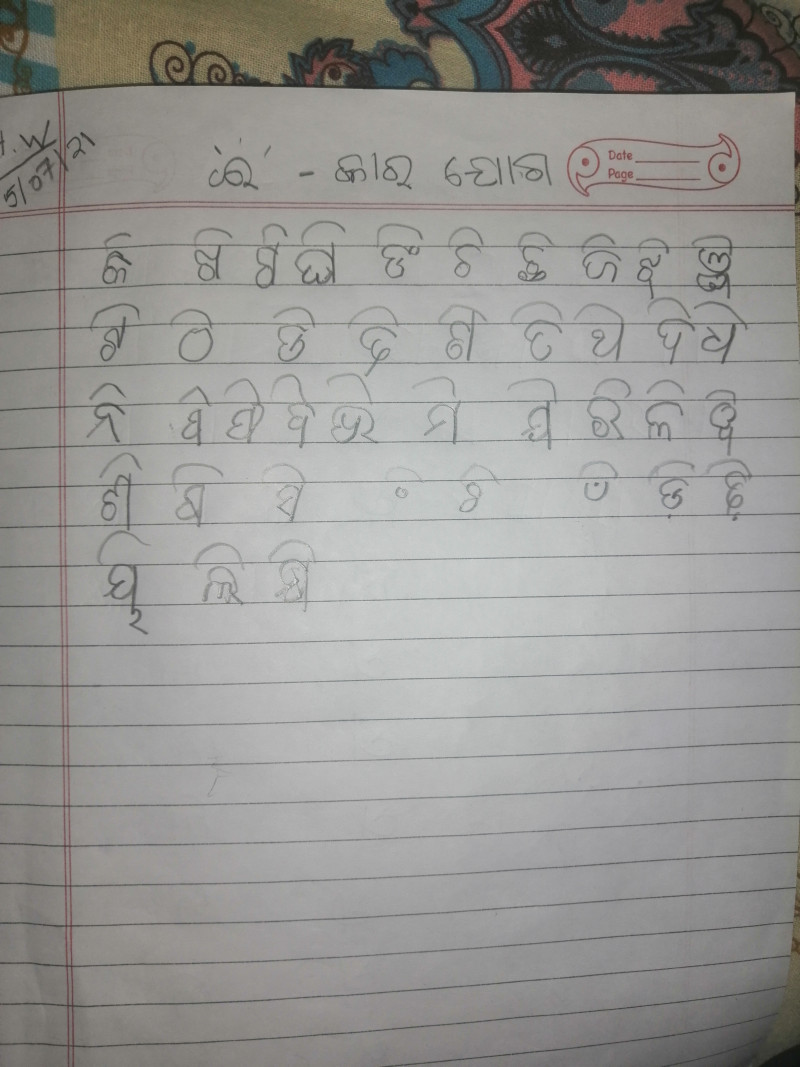 H.W
5/07/21
'ଇ' - କାର ଯୋଗ
Date
Page
କି ଖି ଗି ଘି ଙି ଚି ଛି ଜି ଝି ଞି
ଟି ଠି ଡି ଢି ଣି ତି ଥି ଦି ଧି
ନି ପି ଫି ବି ଭି ମି ଯି ରି ଳି ୱି
ଶି ଷି ସି ହି ଡ଼ି ଢ଼ି
ୟି ଲି